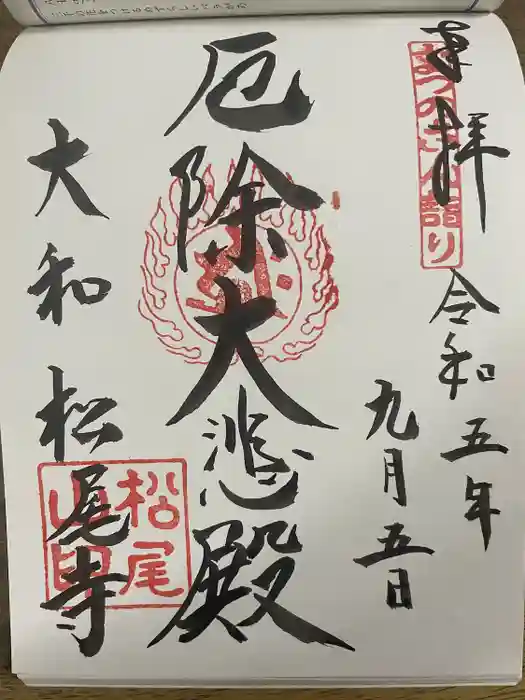 奉拝
まつのさん詣り
令和五年
九月五日
厄除大悲殿
大和 松尾寺
松尾山印